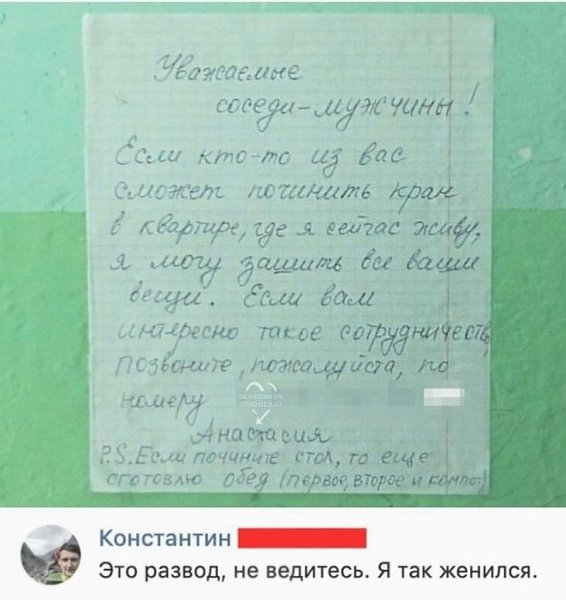 Уважаемые
соседи-мужчины!
Если кто-то из вас
сможет починить кран
в квартире, где я сейчас живу,
я могу зашить все ваши
вещи. Если вам
интересно такое сотрудничество,
позвоните, пожалуйста, по
номеру
ПСИХОЛОГИЯ
ОТНОШЕНИЙ
Анастасия
P.S. Если почините стол, то еще
сготовлю обед (первое, второе и компот)
Константин
Это развод, не ведитесь. Я так женился.